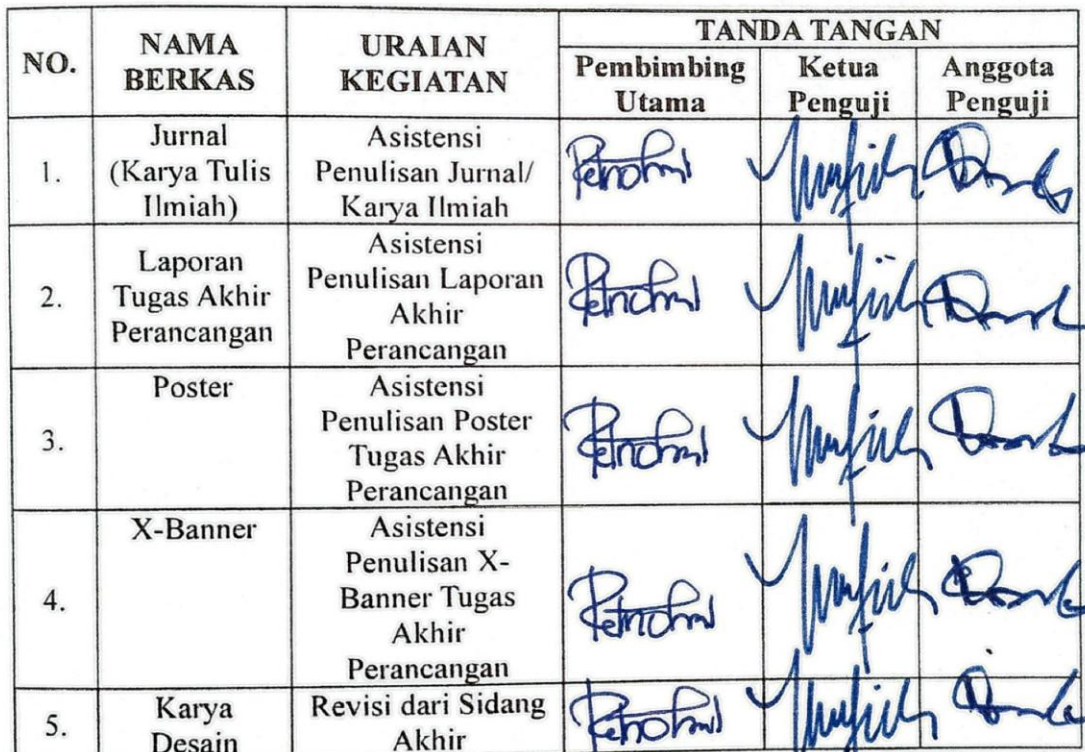 NO.
NAMA
BERKAS
URAIAN
KEGIATAN
TANDA TANGAN
Pembimbing
Utama
Ketua
Penguji
Anggota
Penguji
1.
Jurnal
(Karya Tulis
Ilmiah)
Asistensi
Penulisan Jurnal/
Karya Ilmiah
2.
Laporan
Tugas Akhir
Perancangan
Asistensi
Penulisan Laporan
Akhir
Perancangan
3.
Poster
Asistensi
Penulisan Poster
Tugas Akhir
Perancangan
4.
X-Banner
Asistensi
Penulisan X-
Banner Tugas
Akhir
Perancangan
5.
Karya
Desain
Revisi dari Sidang
Akhir